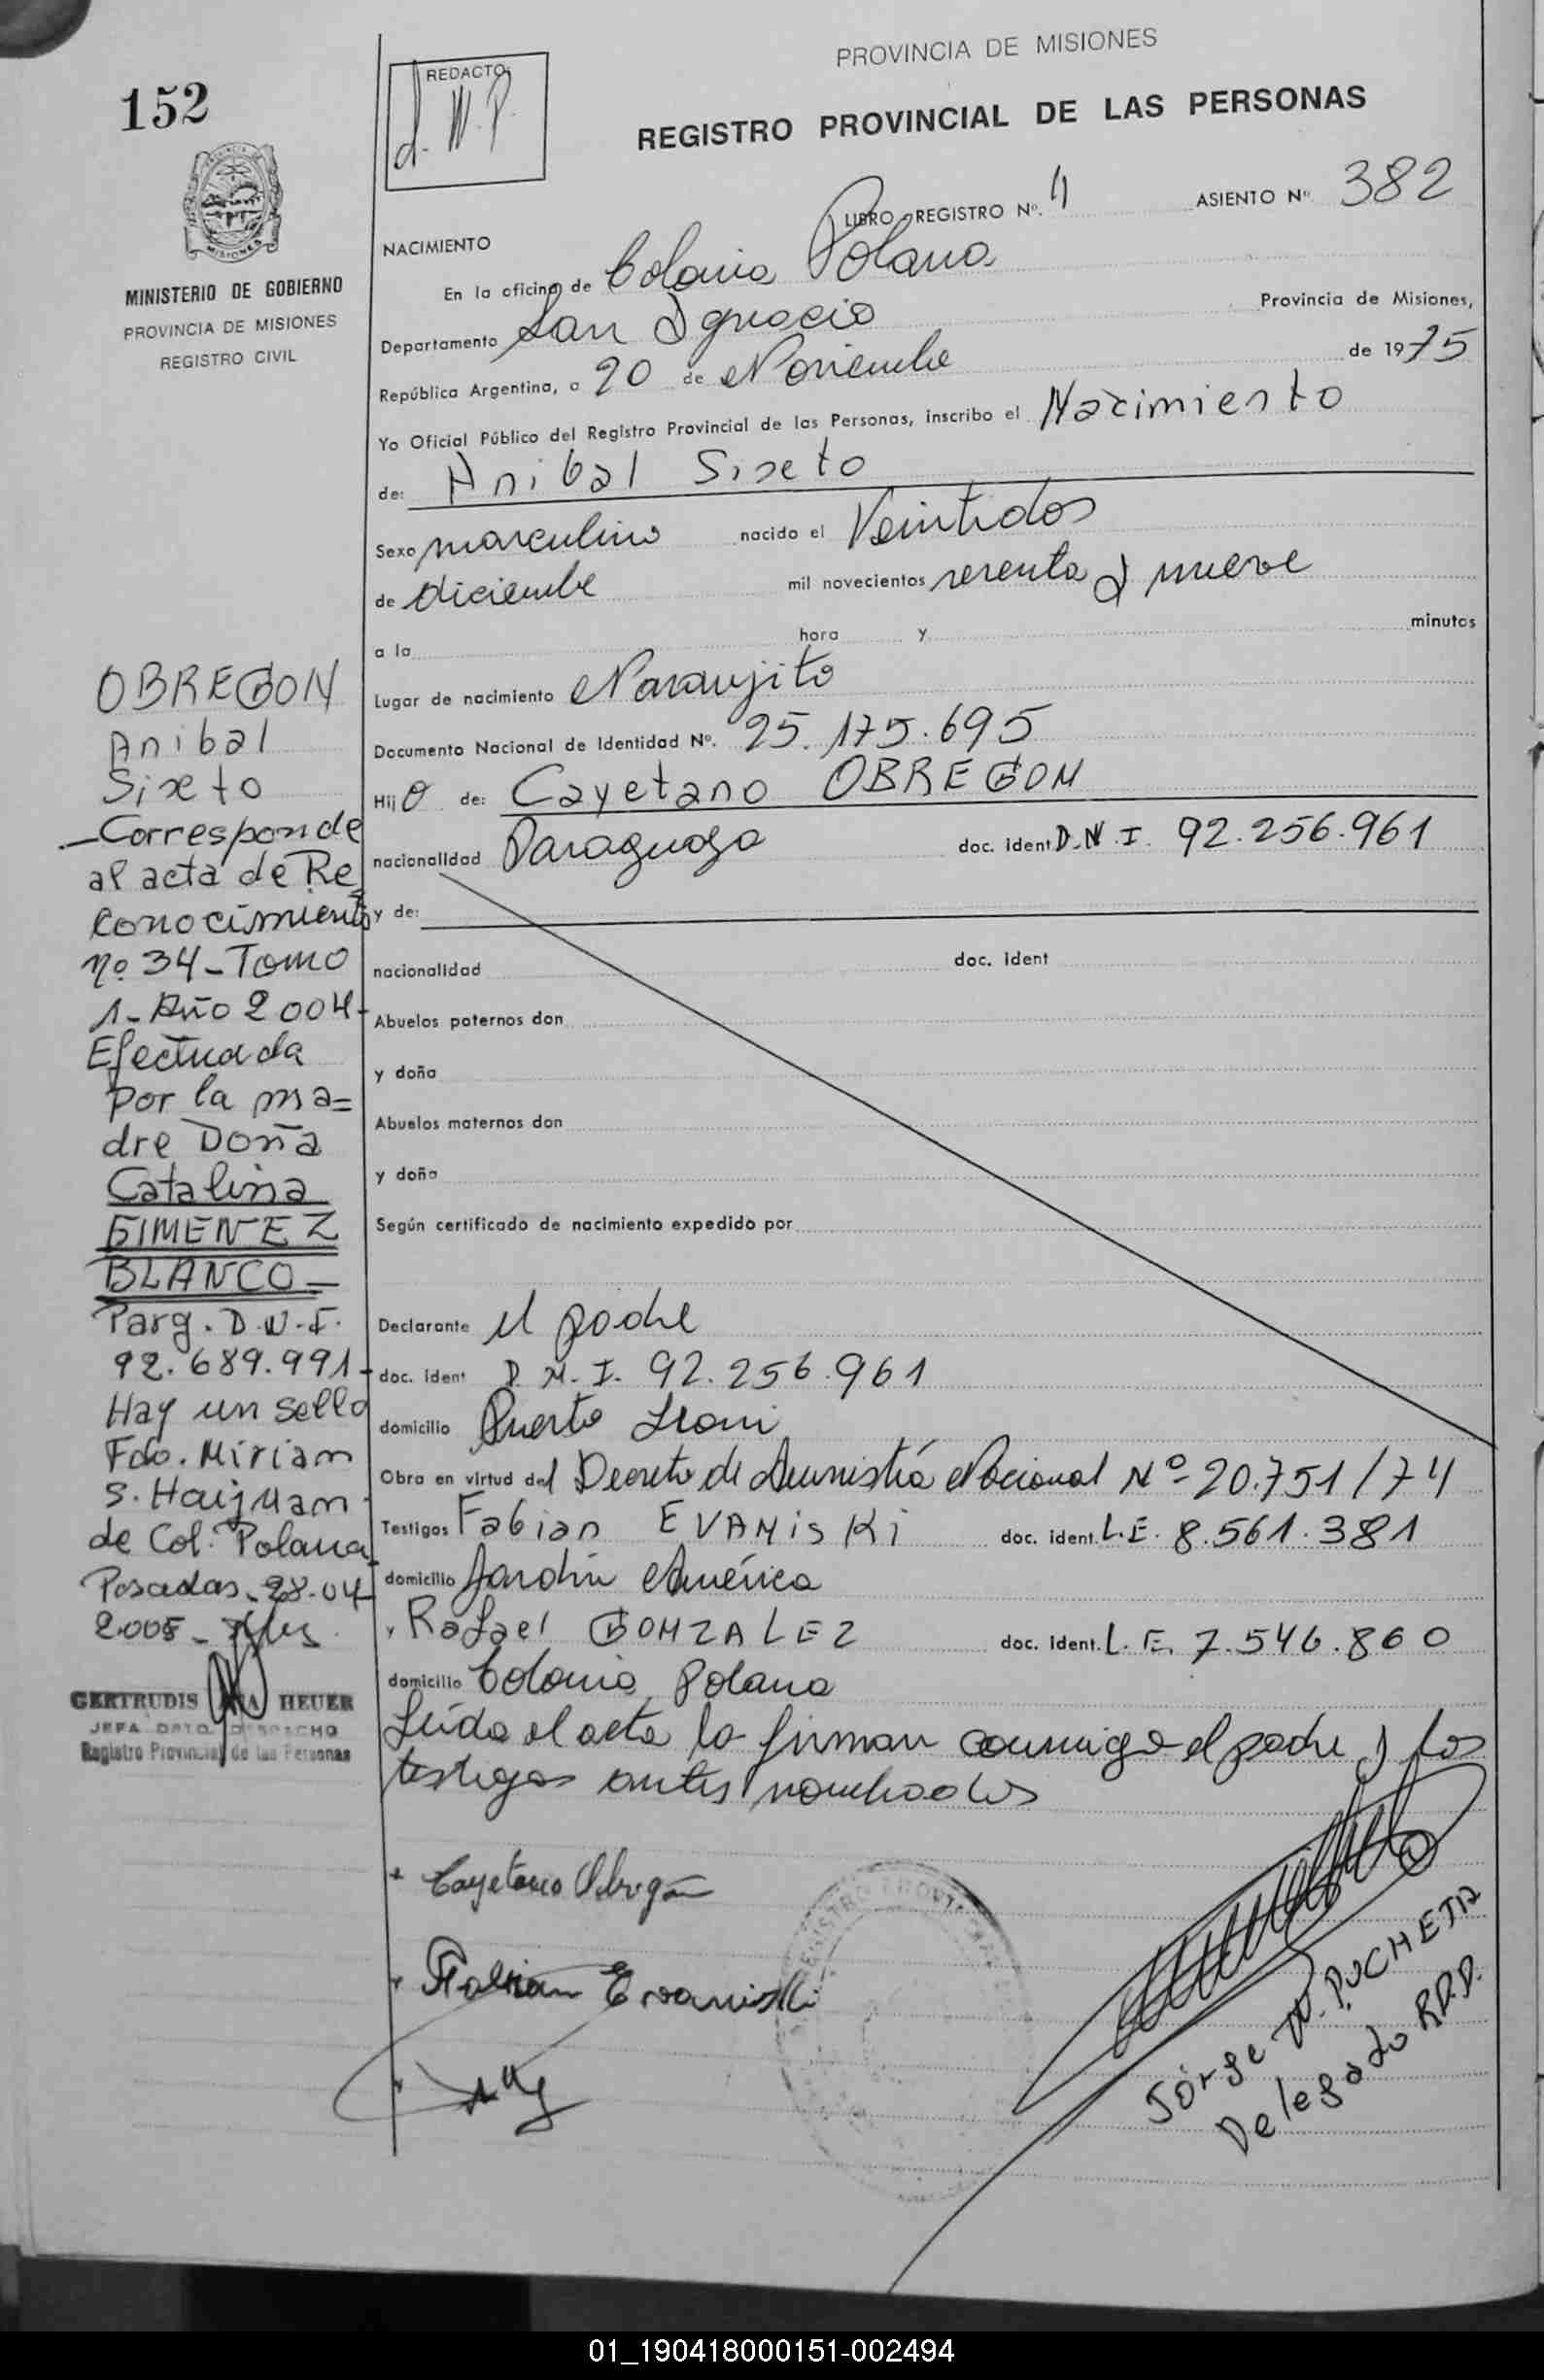 152
REDACTO:
J. W. P.
PROVINCIA DE MISIONES
REGISTRO PROVINCIAL DE LAS PERSONAS
MISIONES
MINISTERIO DE GOBIERNO
PROVINCIA DE MISIONES
REGISTRO CIVIL
LIBRO REGISTRO Nº. 4 ASIENTO Nº 382
NACIMIENTO
En la oficina de Colonia Polana
Departamento San Ignacio Provincia de Misiones,
República Argentina, a 20 de Noviembre de 1975
Yo Oficial Público del Registro Provincial de las Personas, inscribo el Nacimiento
de: Anibal Sixeto
Sexo masculino nacido el Veintidos
de diciembre mil novecientos sesenta y nueve
a la hora y minutos
Lugar de nacimiento Naranjito
Documento Nacional de Identidad Nº. 25.175.695
Hijo de: Cayetano OBREGON
nacionalidad Paraguaya doc. ident D.N.I. 92.256.961
y de:
nacionalidad doc. ident
Abuelos paternos don
y doña
Abuelos maternos don
y doña
Según certificado de nacimiento expedido por
Declarante el padre
doc. ident D.N.I. 92.256.961
domicilio Puerto Leoni
Obra en virtud del Decreto de Amnistía Nacional Nº 20.751/74
Testigos Fabian EVANISKI doc. ident. L.E. 8.561.381
domicilio Jardín América
y Rafael GONZALEZ doc. ident. L.E. 7.546.860
domicilio Colonia Polana
Leída el acta la firman conmigo el padre y los
testigos antes nombrados
OBREGON
Anibal
Sixeto
-Corresponde
al acta de Re
conocimiento
nº 34-Tomo
1-Año 2004-
Efectuada
por la ma=
dre Doña
Catalina
GIMENEZ
BLANCO-
Parg. D.N.I.
92.689.991-
Hay un sello
Fdo. Miriam
S. Haijman
de Col. Polana
Posadas, 28-04-
2005-
GERTRUDIS HEUER
JEFA DPTO. DESPACHO
Registro Provincial de las Personas
Cayetano Obregón
Fabian Evaniski
Jorge W. PUCHETA
Delegado R.P.P.
01_190418000151-002494